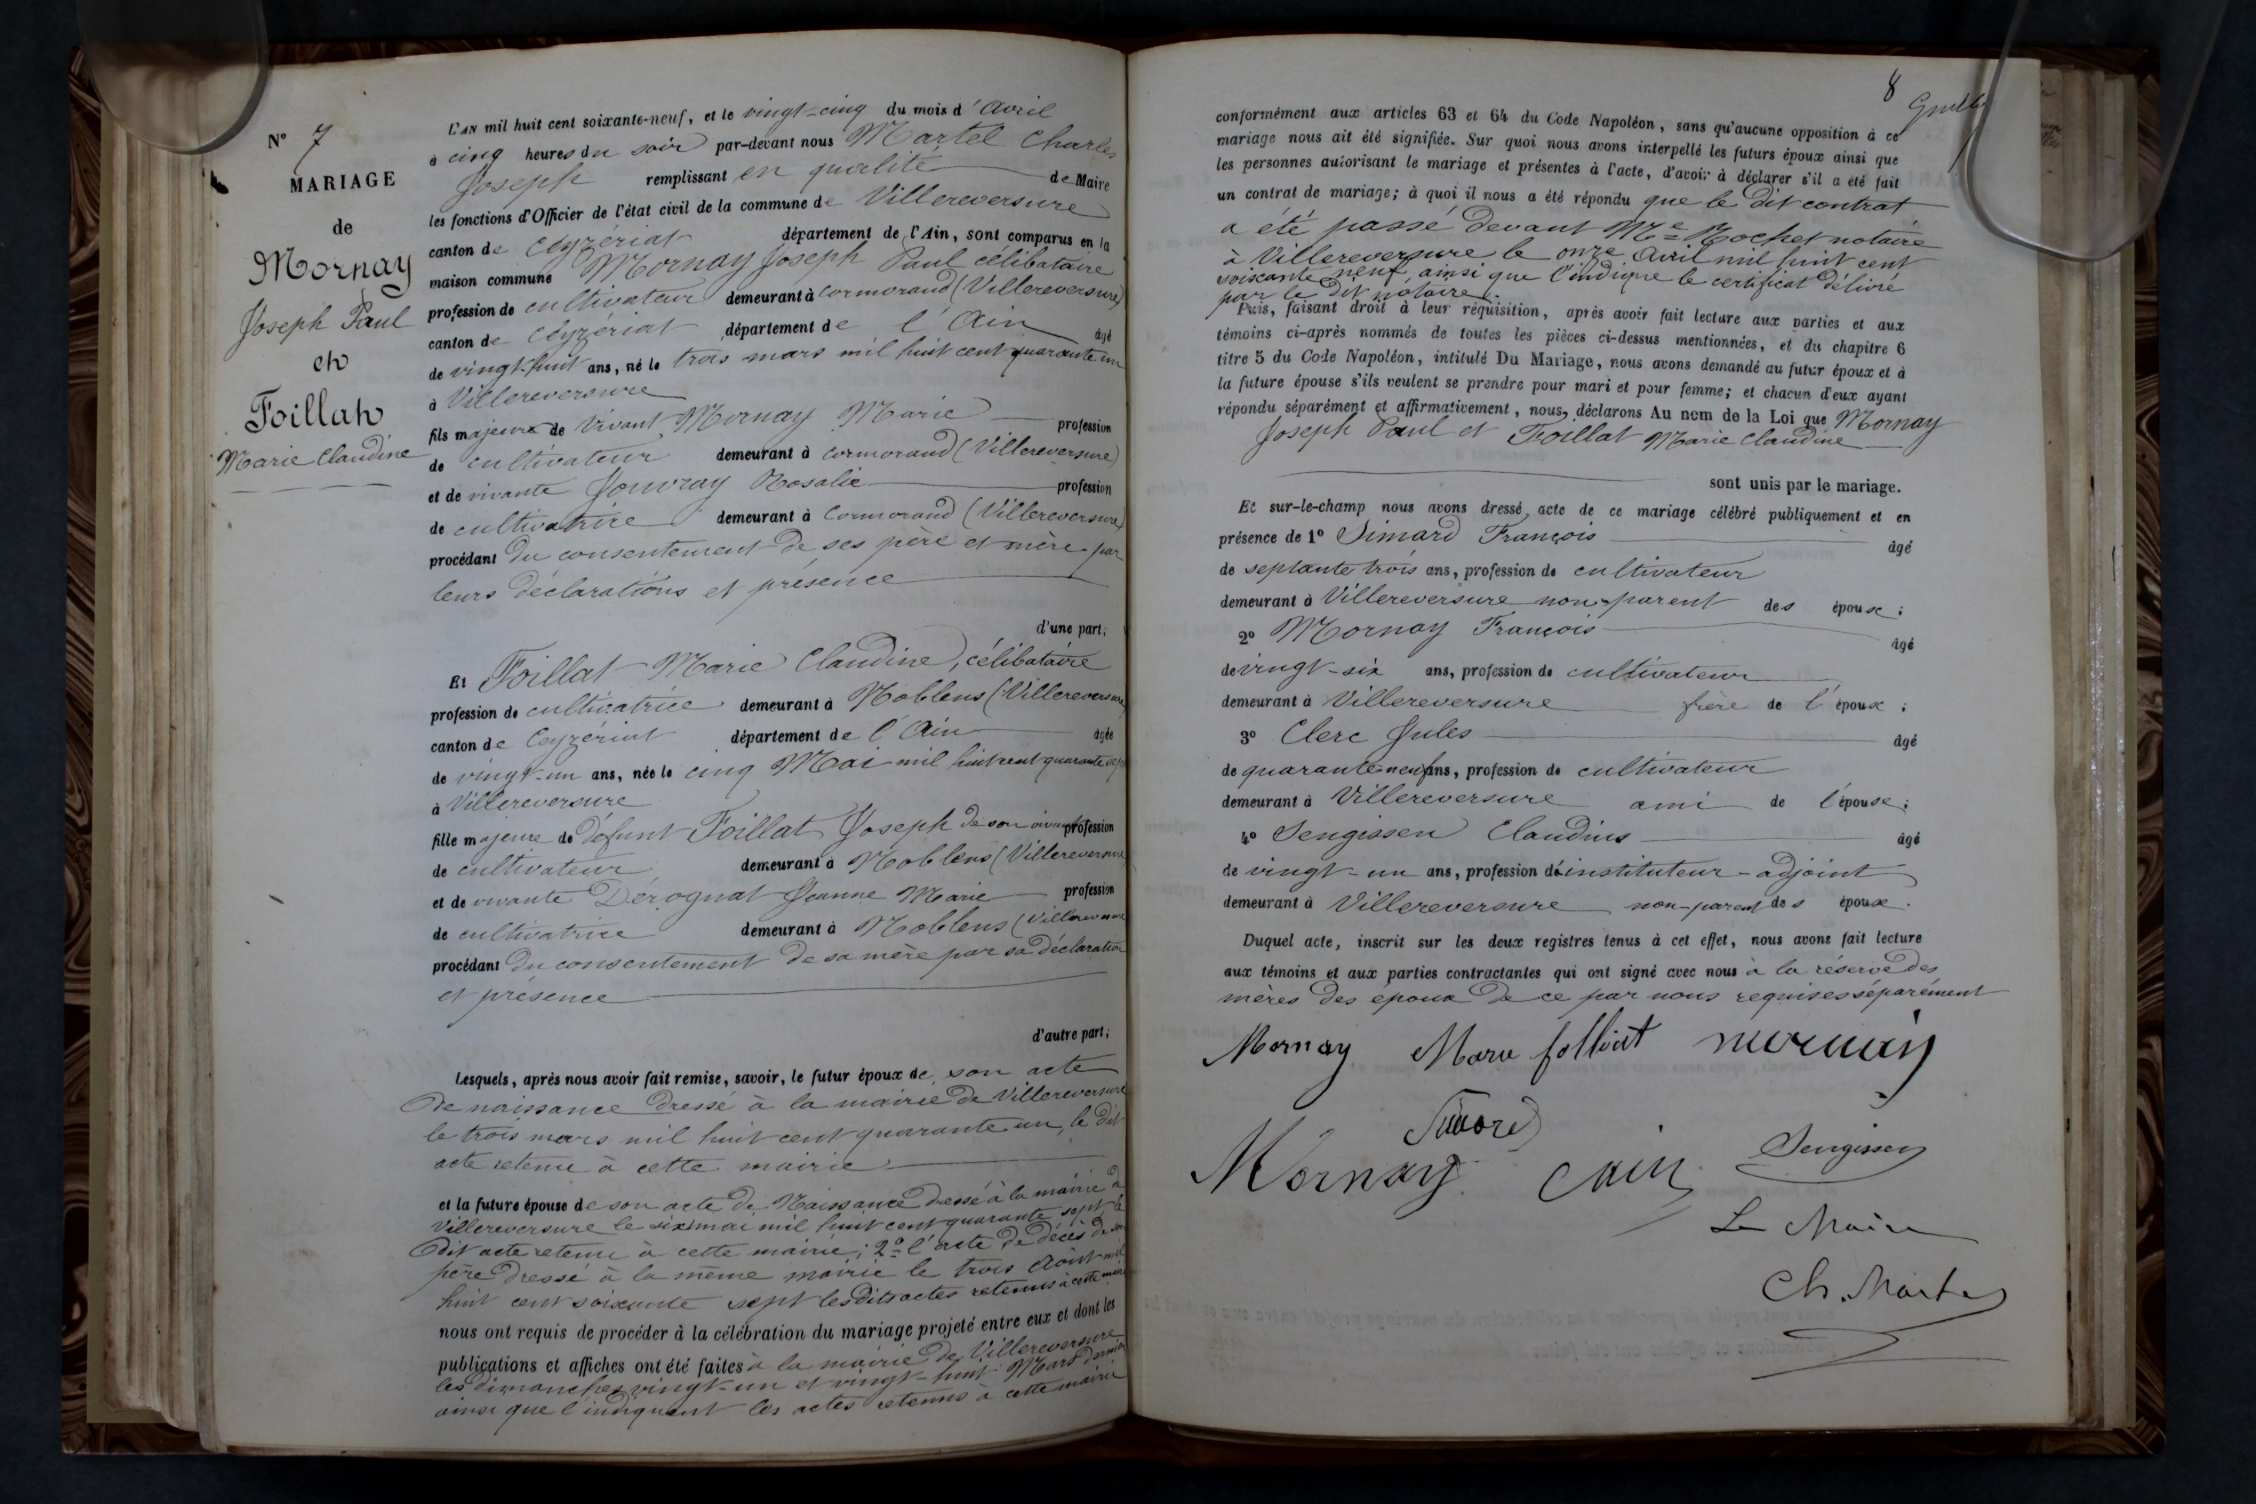 N° 7
MARIAGE
de
Mornay
Joseph Paul
et
Foillat
Marie Claudine
L'AN mil huit cent soixante-neuf, et le vingt-cinq du mois d'Avril
à cinq heures du soir par-devant nous Martel Charles
Joseph remplissant en qualité de Maire
les fonctions d'Officier de l'état civil de la commune de Villereversure
canton de Ceyzériat département de l'Ain, sont comparus en la
maison commune Mornay Joseph Paul célibataire
profession de cultivateur demeurant à Cormorand (Villereversure)
canton de Ceyzériat département de l'Ain âgé
de vingt-huit ans, né le trois mars mil huit cent quarante un
à Villereversure
fils majeur de vivant Mornay Marie profession
de cultivateur demeurant à Cormorand (Villereversure)
et de vivante Jouvray Rosalie profession
de cultivatrice demeurant à Cormorand (Villereversure)
procédant du consentement de ses père et mère par
leurs déclarations et présence
d'une part;
Et Foillat Marie Claudine, célibataire
profession de cultivatrice demeurant à Noblens (Villereversure
canton de Ceyzériat département de l'Ain âgée
de vingt-un ans, née le cinq Mai mil huit cent quarante sept
à Villereversure
fille majeure de défunt Foillat Joseph de son vivant profession
de cultivateur demeurant à Noblens (Villereversure
et de vivante Dérognat Jeanne Marie profession
de cultivatrice demeurant à Noblens (Villereversure
procédant du consentement de sa mère par sa déclaration
et présence
d'autre part;
Lesquels, après nous avoir fait remise, savoir, le futur époux de son acte
de naissance dressé à la mairie de Villereversure
le trois mars mil huit cent quarante un, le dit
acte retenu à cette mairie
et la future épouse de son acte de Naissance dressé à la mairie de
Villereversure le six mai mil huit cent quarante sept le
dit acte retenu à cette mairie; 2° l'acte de décès de son
père dressé à la même mairie le trois Août mil
huit cent soixante sept les dits actes retenus à cette mairie
nous ont requis de procéder à la célébration du mariage projeté entre eux et dont les
publications et affiches ont été faites à la mairie de Villereversure
les dimanches vingt-un et vingt-huit Mars dernier
ainsi que l'indiquent les actes retenus à cette mairie
8
conformément aux articles 63 et 64 du Code Napoléon, sans qu'aucune opposition à ce
mariage nous ait été signifiée. Sur quoi nous avons interpellé les futurs époux ainsi que
les personnes autorisant le mariage et présentes à l'acte, d'avoir à déclarer s'il a été fait
un contrat de mariage; à quoi il nous a été répondu que le dit contrat
a été passé devant Me Rochet notaire
à Villereversure le onze avril mil huit cent
soixante neuf, ainsi que l'indique le certificat délivré
par le dit notaire.
Puis, faisant droit à leur réquisition, après avoir fait lecture aux parties et aux
témoins ci-après nommés de toutes les pièces ci-dessus mentionnées, et du chapitre 6
titre 5 du Code Napoléon, intitulé Du Mariage, nous avons demandé au futur époux et à
la future épouse s'ils veulent se prendre pour mari et pour femme; et chacun d'eux ayant
répondu séparément et affirmativement, nous, déclarons Au nom de la Loi que Mornay
Joseph Paul et Foillat Marie Claudine
sont unis par le mariage.
Et sur-le-champ nous avons dressé acte de ce mariage célébré publiquement et en
présence de 1° Simard François âgé
de septante trois ans, profession de cultivateur
demeurant à Villereversure non-parent des époux;
2° Mornay François âgé
de vingt-six ans, profession de cultivateur
demeurant à Villereversure frère de l'époux;
3° Clerc Jules âgé
de quarante neuf ans, profession de cultivateur
demeurant à Villereversure ami de l'épouse;
4° Sengissen Claudius âgé
de vingt-un ans, profession d'instituteur-adjoint
demeurant à Villereversure non-parent des époux.
Duquel acte, inscrit sur les deux registres tenus à cet effet, nous avons fait lecture
aux témoins et aux parties contractantes qui ont signé avec nous à la réserve des
mères des époux de ce par nous requises séparément
Mornay Marie follint mornay
Simard
Mornay Sengissen
Le Maire
Ch. Martel